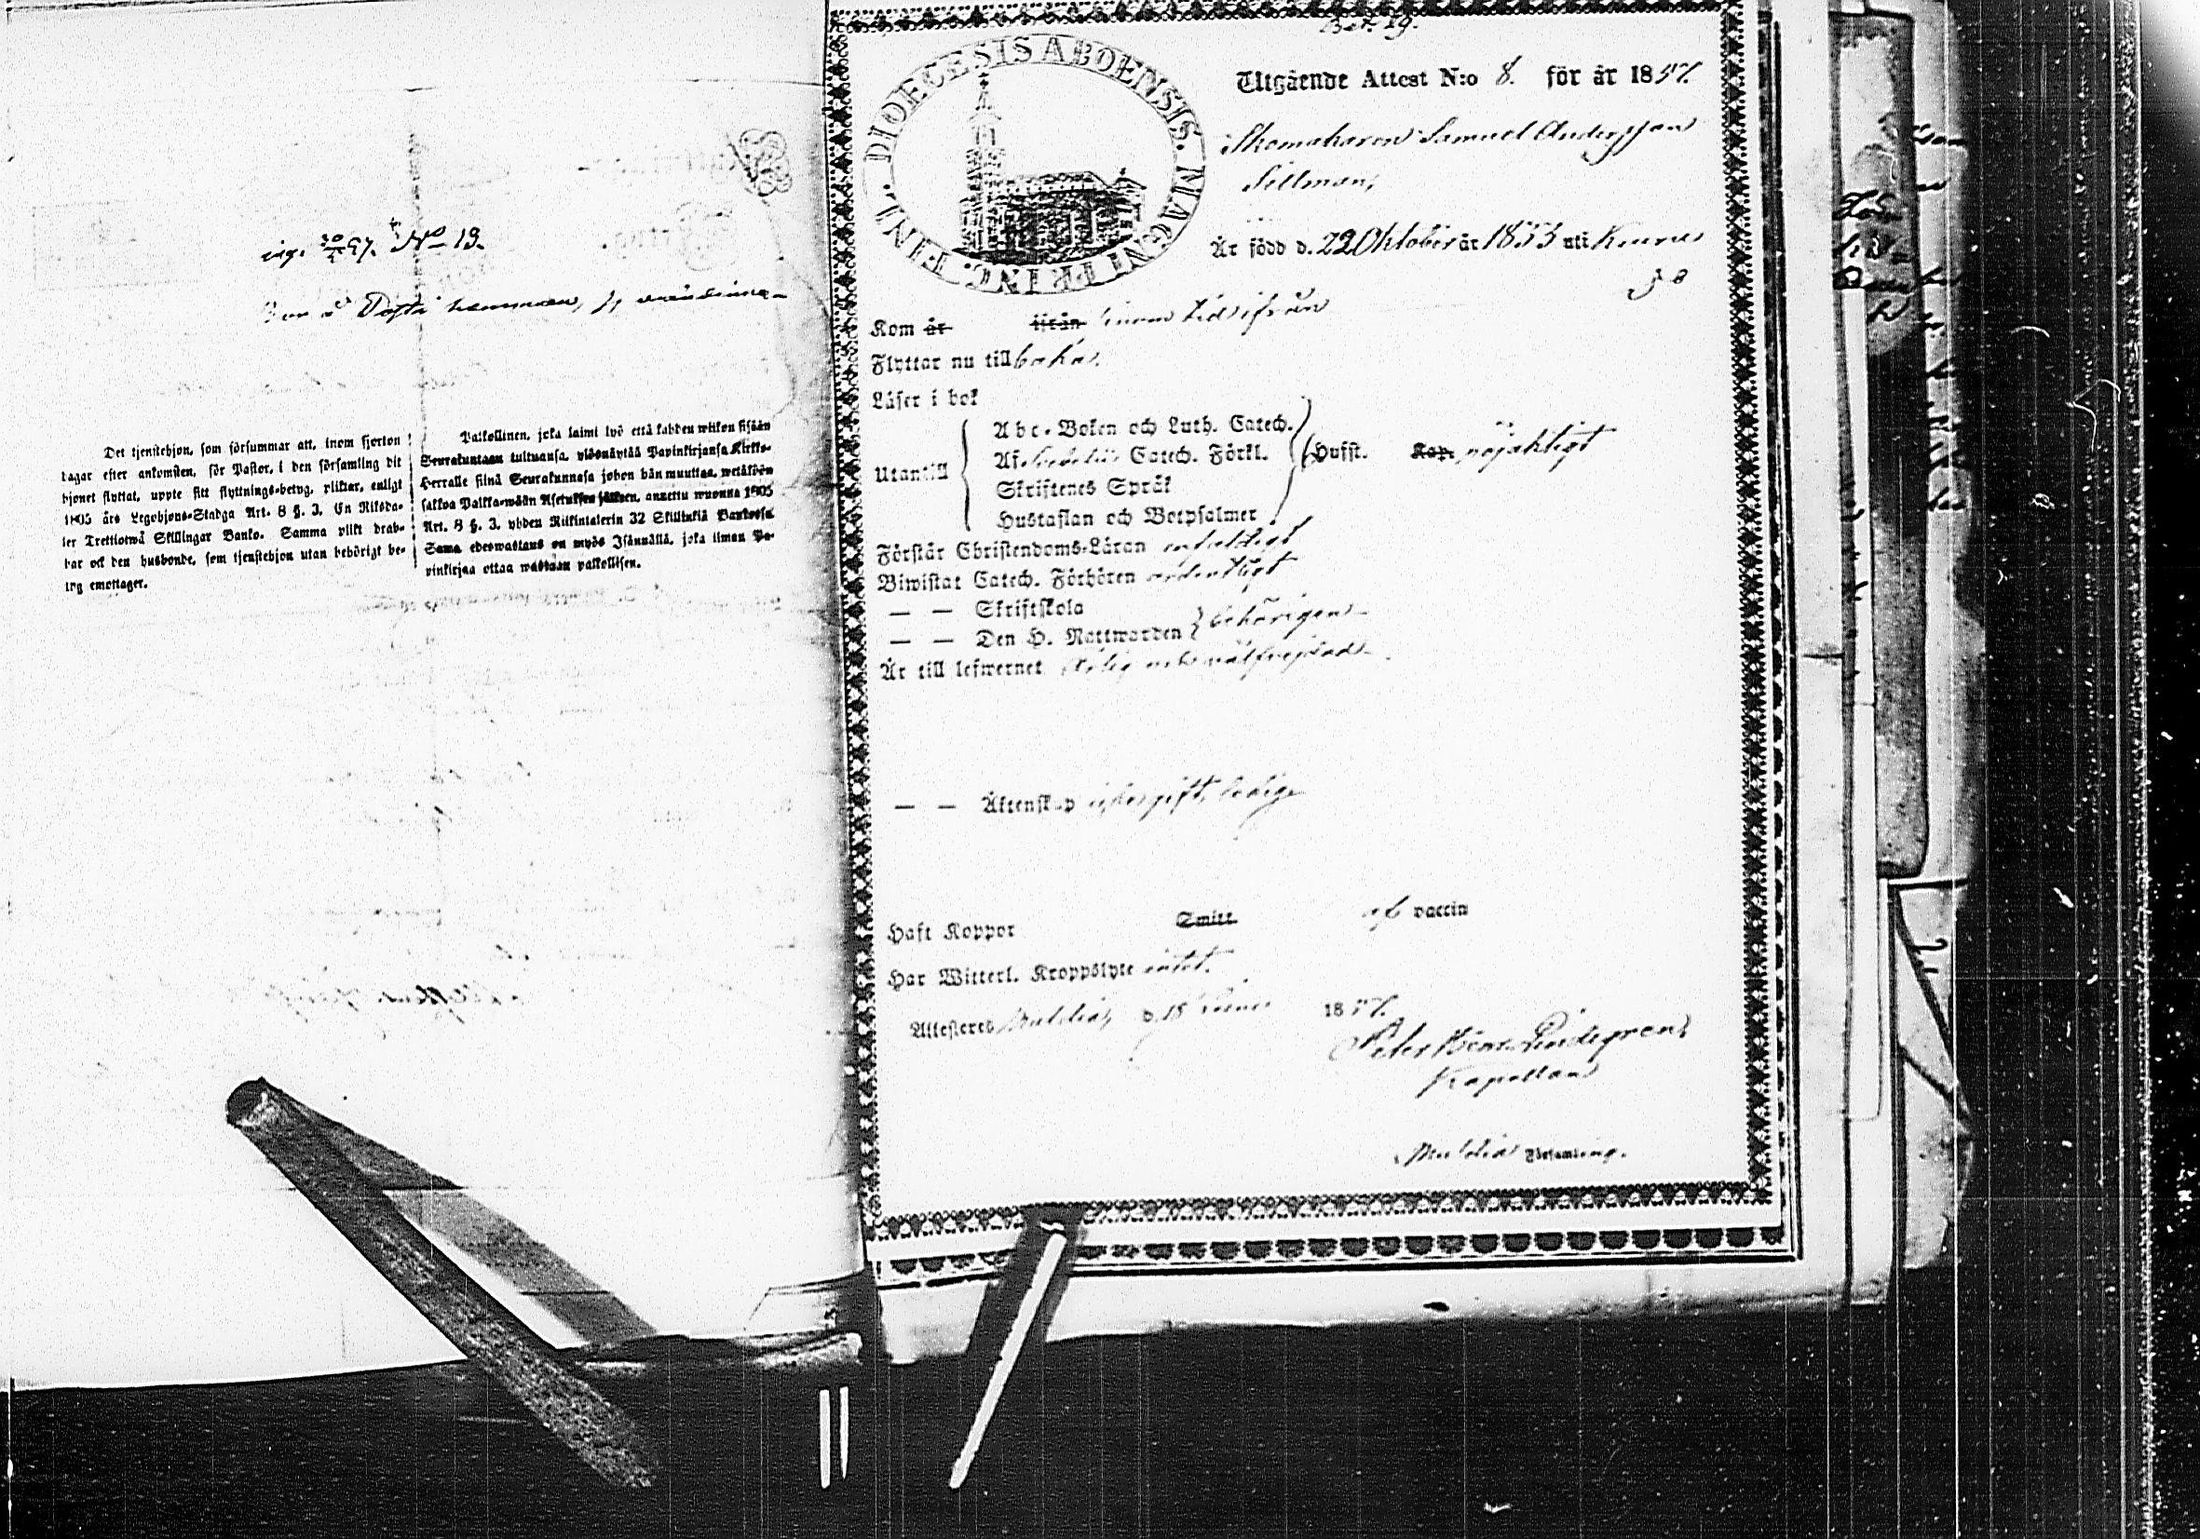 ing. 30/4 57. No 19.
Det tjenstehjon, som försummar att, inom fjorton
dagar efter ankomsten, för Pastor, i den församling dit
hjonet flyttat, uppte sitt flyttnings-betyg, pliktar, enligt
1805 års Legohjons-Stadga Art. 8 §. 3, En Riksda-
ler Trettiotwå Skillingar Banko. Samma plikt drab-
bar ock den husbonde, som tjenstehjon utan behörigt be-
tyg emottager.
Palkollinen, joka laimi lyö että kahden wiikon sisään
Seurakuntaan tultuansa, ylösnäyttää Papinkirjansa Kirkko-
Herralle siinä Seurakunnasa johon hän muuttaa, wetäköön
sakkoa Palkka-wään Asetuksen jälkeen, annettu wuonna 1805
Art. 8 §. 3, yhden Riikintalerin 32 Skillinkiä Bankossa
Sama edeswastaus on myös Isännällä, joka ilman Pa-
pinkirjaa ottaa wastaan palkollisen.
Bet. 19.
DIOECESIS ABOENSIS. MAGNI PRINC. FINL.
Utgående Attest N:o 8. för år 1857.
Skomakaren Samuel Andersson
Sillman,
Är född d. 22 Oktober år 1833 uti
Kom år ifrån innom tid ifrån
Flyttar nu till baka.
Läser i bok
Utantill
Abc-Boken och Luth. Catech.
Catech. Förkl.
Skriftenes Språk
Hustaflan och Botpsalmer
Hufft. Kap. nöjaktigt
Förstår Christendoms-Läran enfaldigt
Biwistat Catech. Förhören ordentligt
— — Skriftskola
— — Den H. Nattwarden } behörigen
Är till lefwernet ärlig och välfrejdad.
— — Äktenskap ogift, ledig
Haft Koppor Smitt af vaccin
Har Witterl. Kroppslyte intet.
Attesteras d. 18 1857.
Peter Lindegren,
Kapellan
Församling.